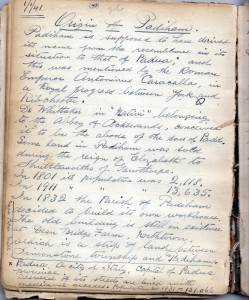 Origin of Padiham
Padiham is supposed to have derived
its name from the resemblance in its
situation to that of Padua; and
this was mentioned by the Roman
Emperor Antoninus Caracalla in
a Royal progress between York and
Ribchester.
Dr Whitaker in "Latin" belonging
to the Abbey of Cockersands, conceives
it to be the abode of the sons of Padd.
Some land in Padiham was sold
during the reign of Elizabeth to
Shuttleworths of Gawthorpe.
In 1801 its population was 2,118.
In 1911 " " " 13,635.
In 1832 the Parish of Padiham
decided to build its own workhouse,
the old building is still in existence
at Dean Bridge Farm,
which is a strip of land between
township and Padiham.
Padua, a city of Italy, Capital of Padua